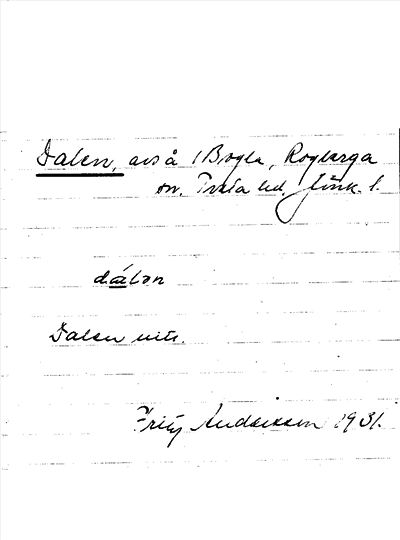 Dalen, avs å 1 Bogla, Rogberga
sn. Tveta hd. Jönk. l.
dælən
Dalen uttr.
Fritz Andersson 1931.